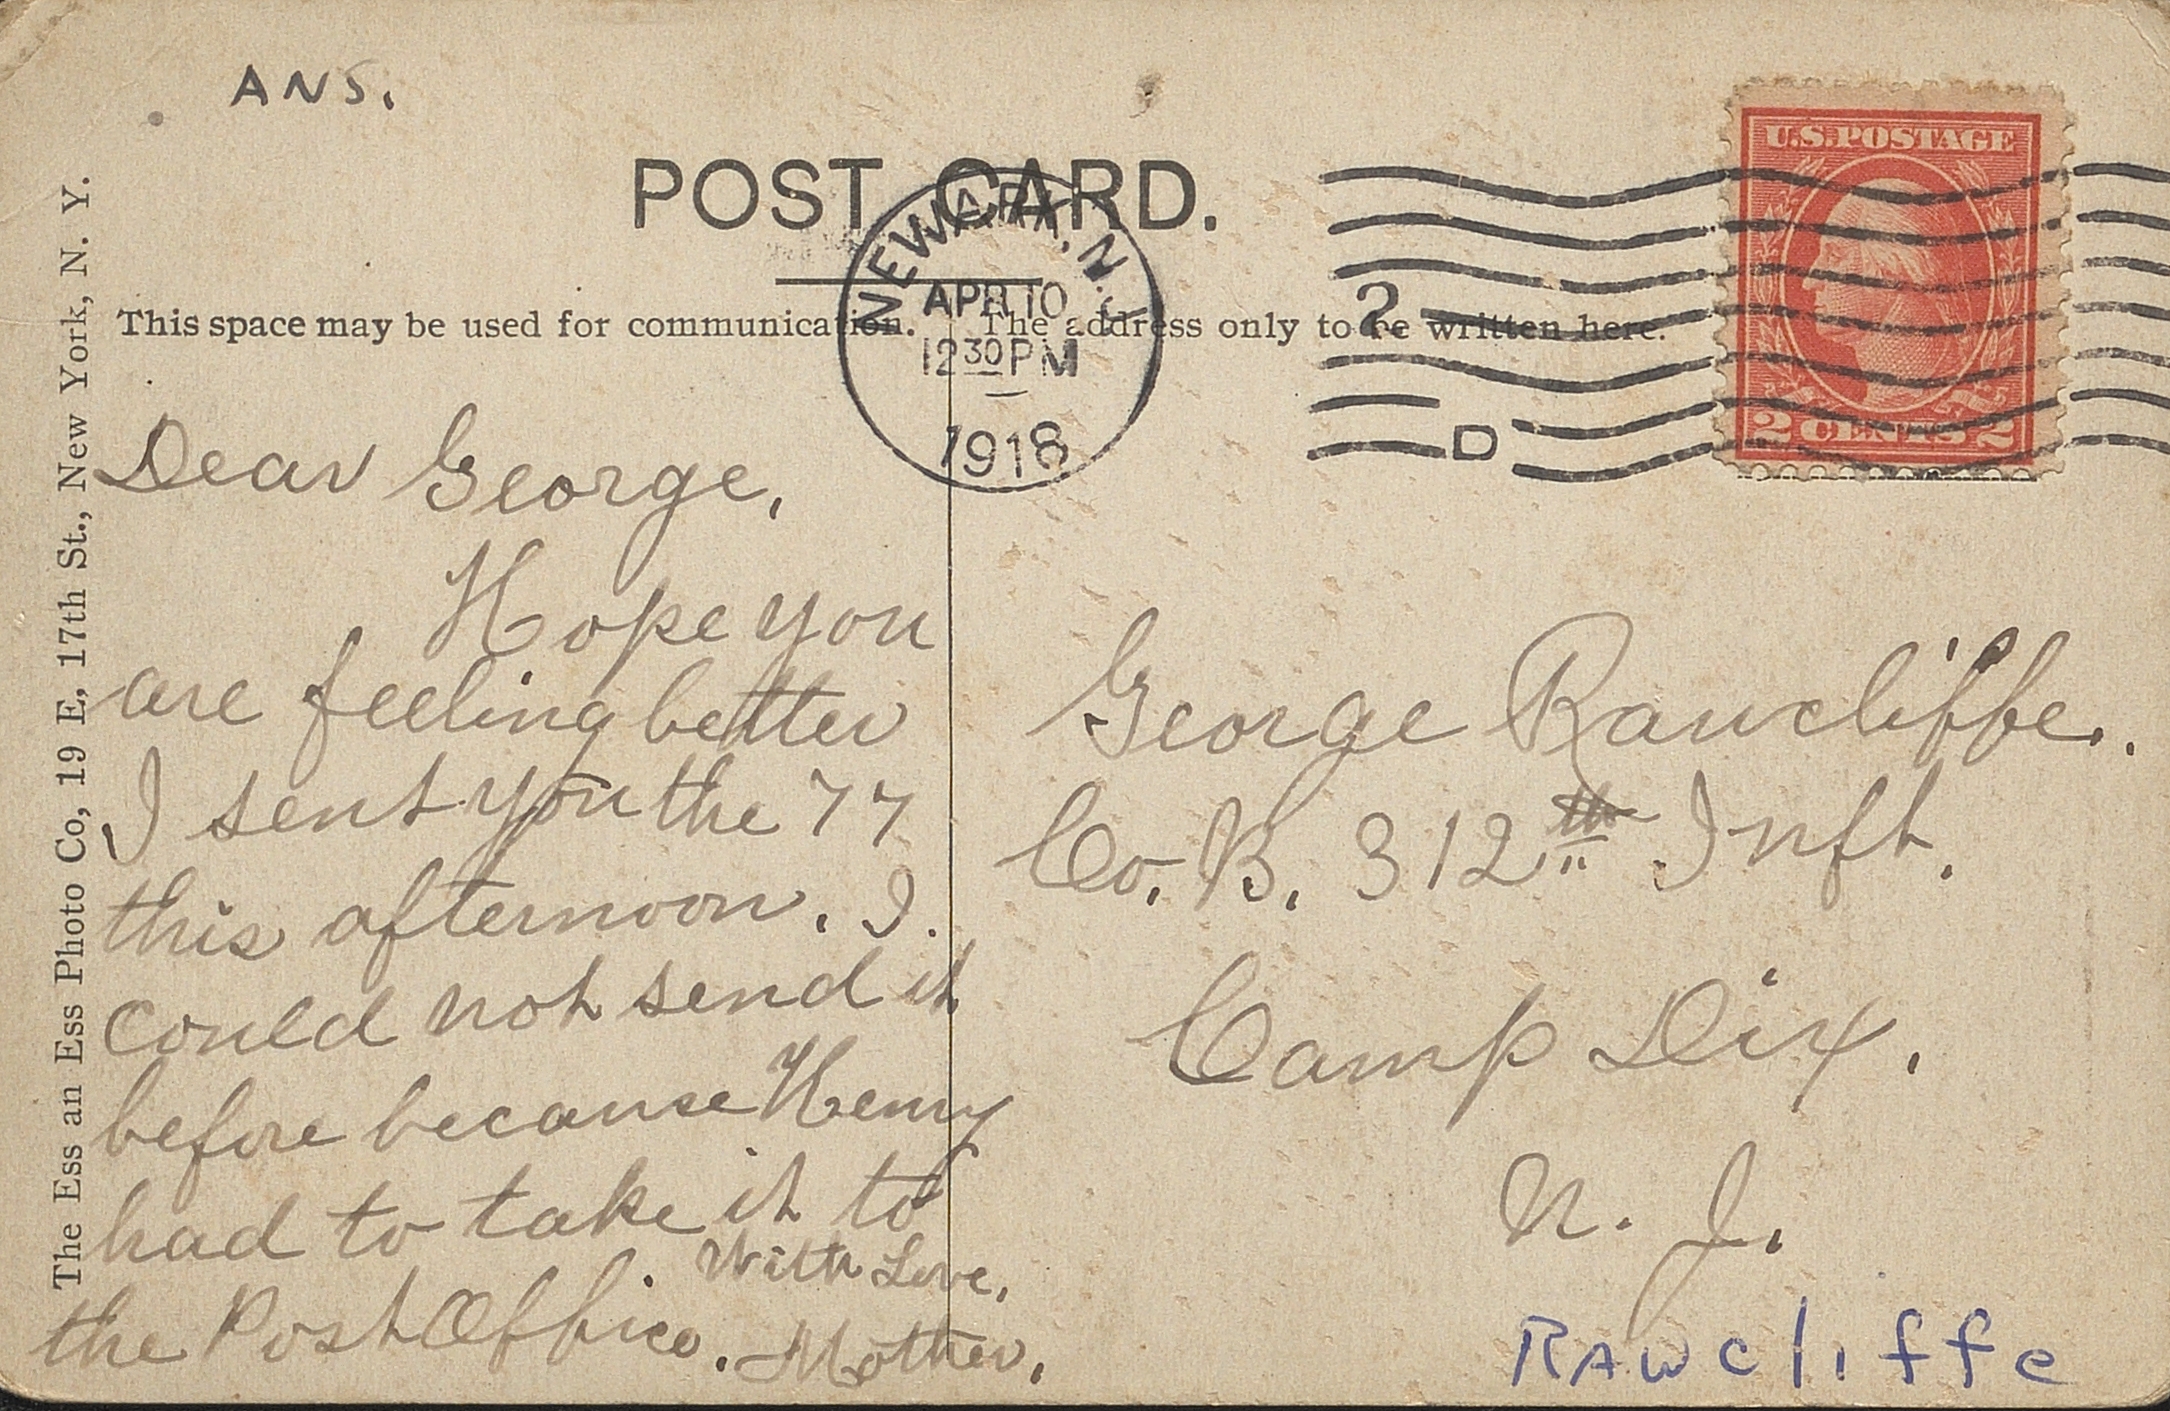 ANS.
POST CARD.
NEWARK, N.J.
APR 10
12 30 PM
1918
2
D
U.S. POSTAGE
2 CENTS 2
This space may be used for communication.
The address only to be written here.
The Ess an Ess Photo Co, 19 E. 17th St., New York, N. Y.
Dear George,
Hope you
are feeling better
I sent you the 77
this afternoon. I
could not send it
before because Henry
had to take it to
the Post Office.
With Love,
Mother,
George Rawcliffe.
Co. B. 312th Inft.
Camp Dix.
N. J.
RAWcliffe